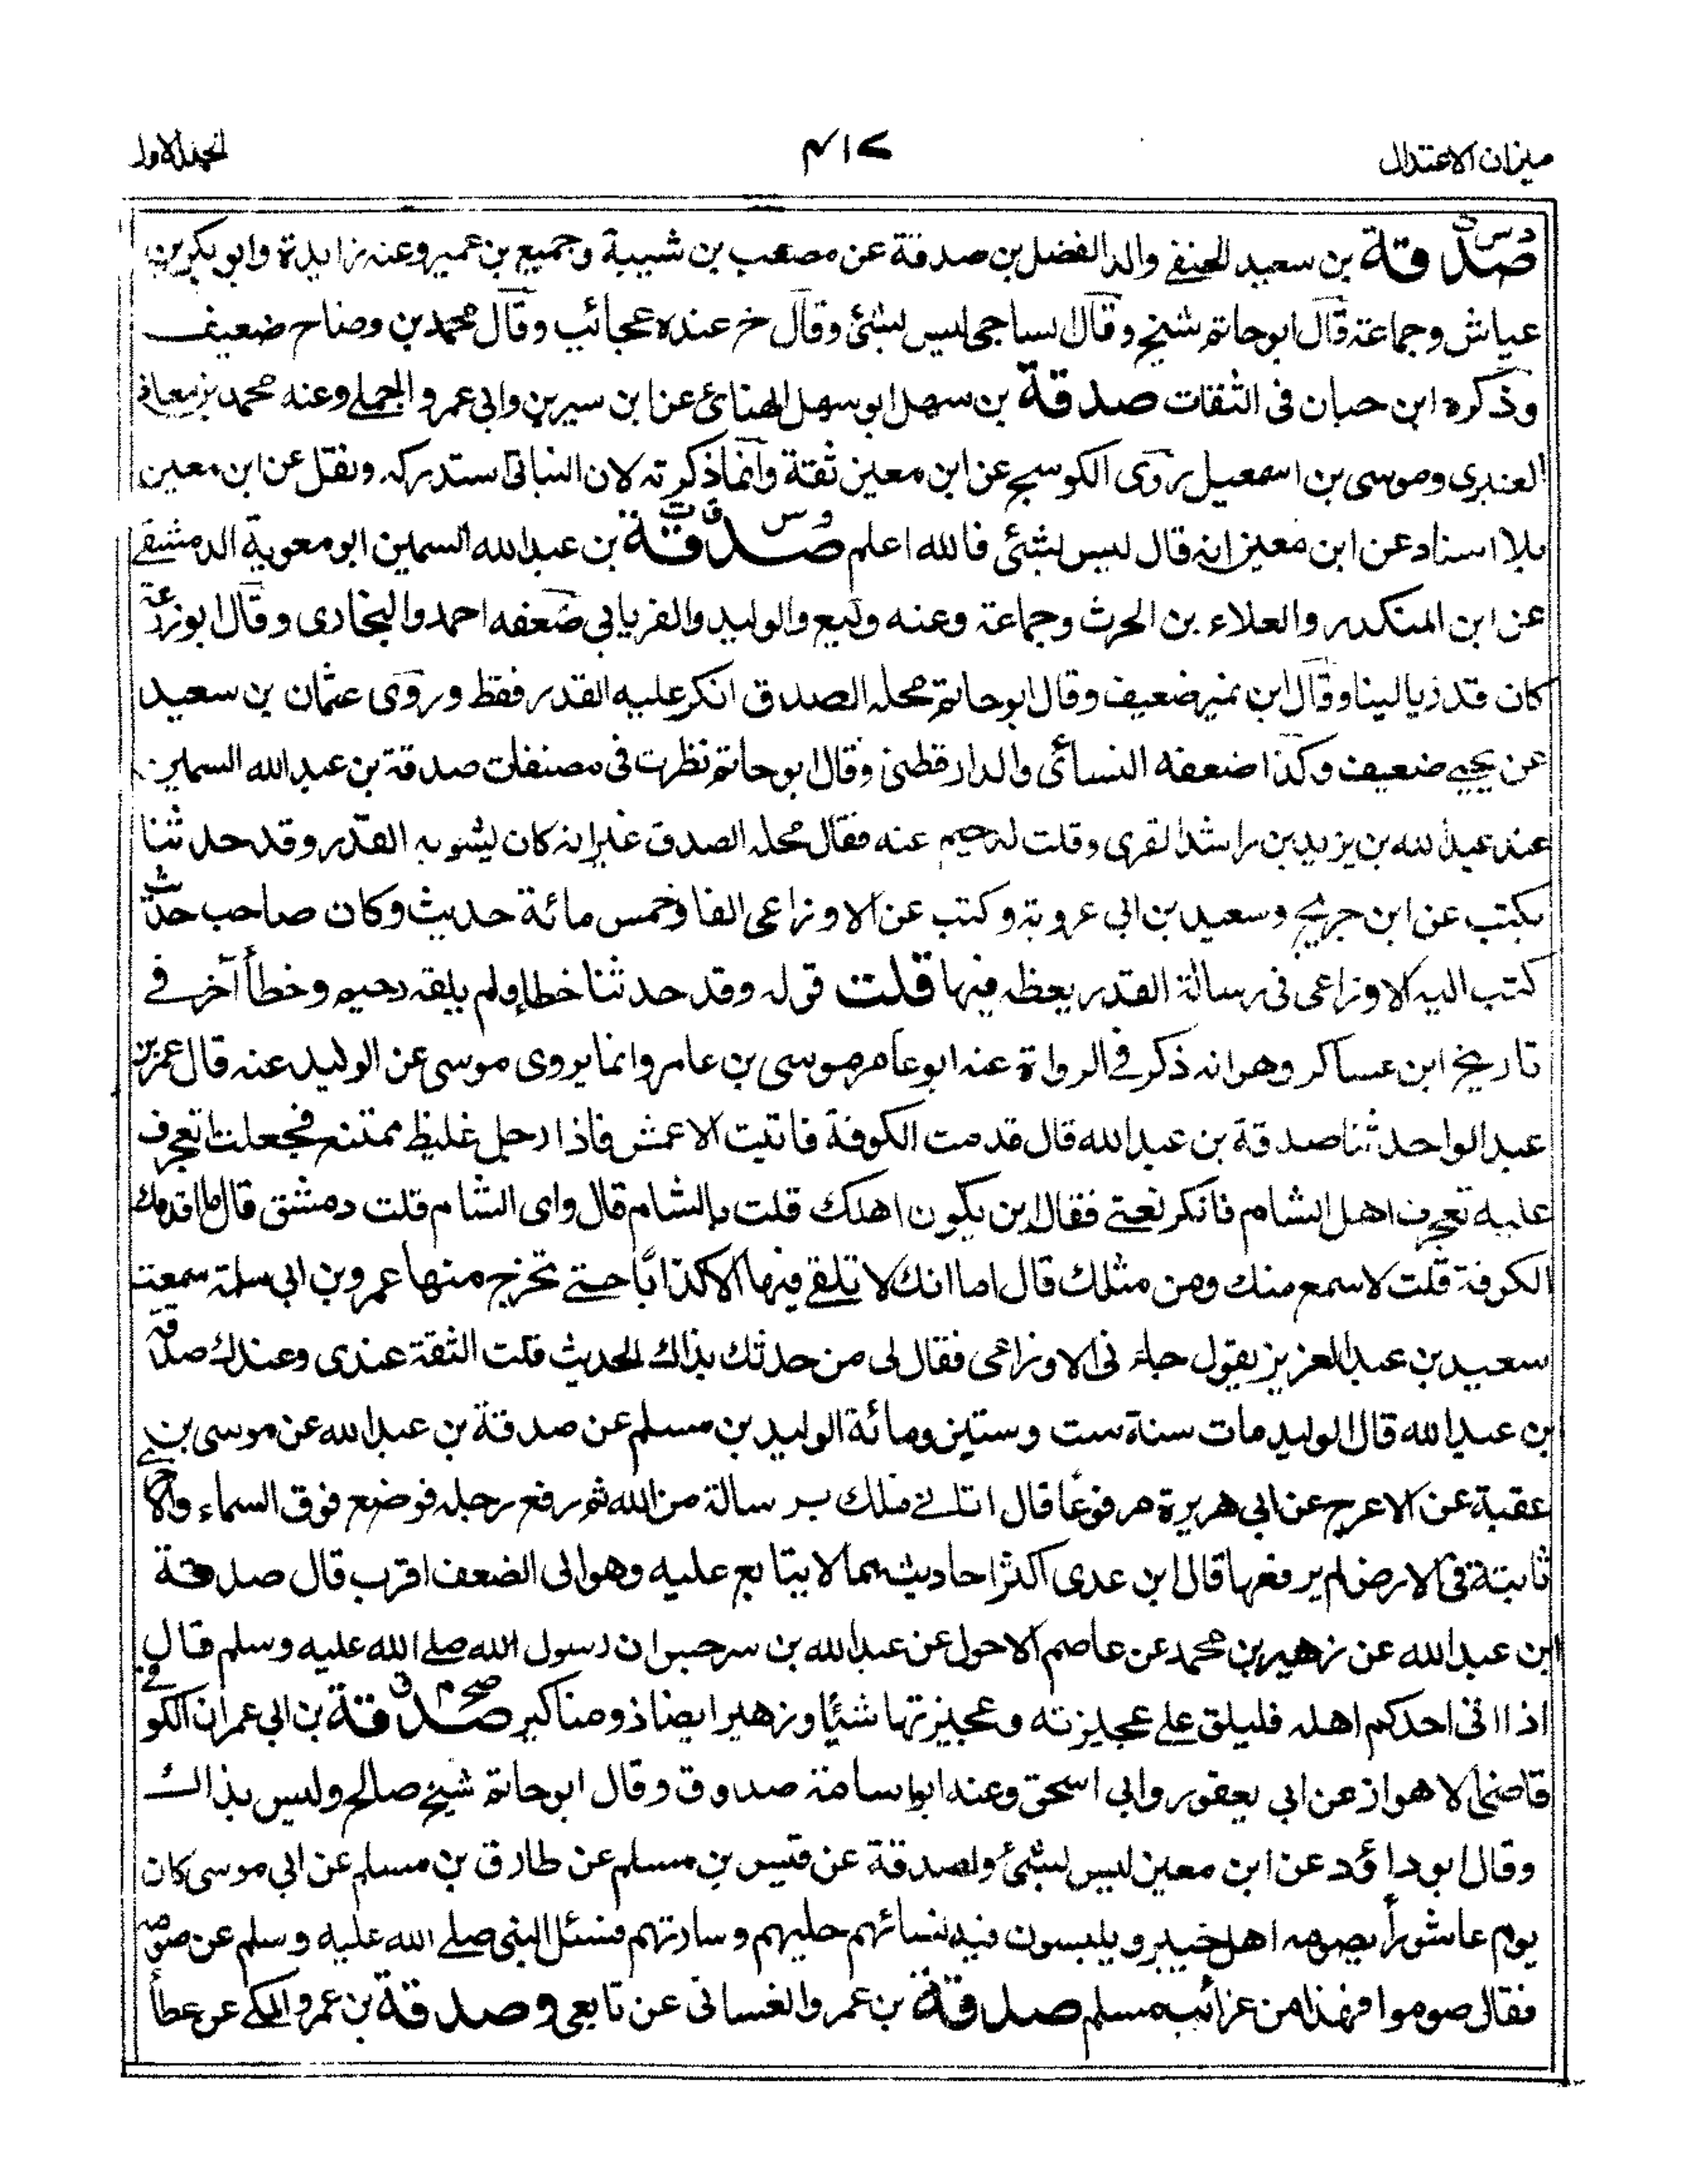 ميزان الاعتدال
٤١٧
الجلد الاول
د س صدقة بن سعيد الحنفے والد الفضل بن صدقة عن مصعب بن شيبة وجميع بن عمير وعنه زايدة وابو بكر بن
عياش وجماعة قال ابو حاتم شيخ وقال لساجى ليس لبشئ وقال خ عنده عجائب وقال محمد بن وضاح ضعيف
وذكره ابن حبان فى الثقات صدقة بن سهل ابو سهل الهنائ عن ابن سيرين وابى عمرو الجملے وعنه محمد بن معاذ
العنبرى وموسى بن اسمعيل روى الكوسج عن ابن معين ثقة وانما ذكرته لان النباتى ستدركه ونقل عن ابن معين
بلا اسناد عن ابن معين انه قال ليس بشئ فالله اعلم صدقة بن عبد الله السمين ابو معوية الدمشقے
عن ابن المنكدر والعلاء بن الحرث وجماعة وعنه وكيع والوليد والفريابى ضعفه احمد والبخارى وقال ابو زرعة
كان قدريا لينا وقال ابن نمير ضعيف وقال ابو حاتم محله الصدق انكر عليه القدر فقط وروى عثمان بن سعيد
عن يحيے ضعيف وكذا ضعفه النسائى والدارقطنى وقال ابو حاتم نظرت فى مصنفات صدقة بن عبد الله السمين
عند عبد الله بن يزيد بن راشد القرى وقلت لدحيم عنه فقال محله الصدق غير انه كان يشوبه القدر وقد حدثنا
بكتب عن ابن جريج وسعيد بن ابى عروبة وكتب عن الاوزاعى الفا وخمس مائة حديث وكان صاحب حديث
كتب اليه الاوزاعى فى رسالة القدر يعظه فيها قلت قوله وقد حدثنا خطا ولم يلقه دحيم وخطأ آخر فے
تاريخ ابن عساكر وهو انه ذكر فى الرواة عنه ابو عامر موسى بن عامر وانما يروى موسى عن الوليد عنه قال عمر بن
عبد الواحد ثنا صدقة بن عبد الله قال قدمت الكوفة فاتيت الاعمش فاذا رجل غليظ ممتنع فجعلت اتعجرف
عليه تعجرف اهل الشام فانكر لغتے فقال اين يكون اهلك قلت بالشام قال واى الشام قلت دمشق قال ما اقدمك
الكوفة قلت لاسمع منك ومن مثلك قال اما انك لا تلقے فيها الا كذابا حتے تخرج منها عمرو بن ابى سلمة سمعت
سعيد بن عبد العزيز يقول جاء نى الاوزاعى فقال لى من حدثك بذاك الحديث قلت الثقة عندى وعندك صدقة
بن عبد الله قال الوليد مات سنة ست وستين ومائة الوليد بن مسلم عن صدقة بن عبد الله عن موسى بن
عقبة عن الاعرج عن ابى هريرة مرفوعا قال اتانے ملك برسالة من الله ثم رفع رجله فوضع فوق السماء والاخرے
ثابتة فى الارض لم يرفعها قال ابن عدى اكثر احاديثه مما لا يتابع عليه وهو الى الضعف اقرب قال صدقة
ابن عبد الله عن زهير بن محمد عن عاصم الاحول عن عبد الله بن سرجس ان رسول الله صلے الله عليه وسلم قال
اذا اتى احدكم اهله فليلق علے عجيزته وعجيزتها شيئا وزهير ايضا ذو مناكير صدقة بن ابى عمران الكوفے
قاضى الاهواز عن ابى يعفور وابى اسحق وعنه ابو اسامة صدوق وقال ابو حاتم شيخ صالح وليس بذاك
وقال ابو داؤد عن ابن معين ليس لبشئ ولصدقة عن قيس بن مسلم عن طارق بن مسلم عن ابى موسى كان
يوم عاشورأ يصومه اهل خيبر ويلبسون فيه نسائهم حليهم وسادتهم فسئل النبى صلے الله عليه وسلم عن صومه
فقال صوموا فهذا من غرائب مسلم صدقة بن عمرو الغسانى عن تابعى وصدقة بن عمرو المكے عن عطأ